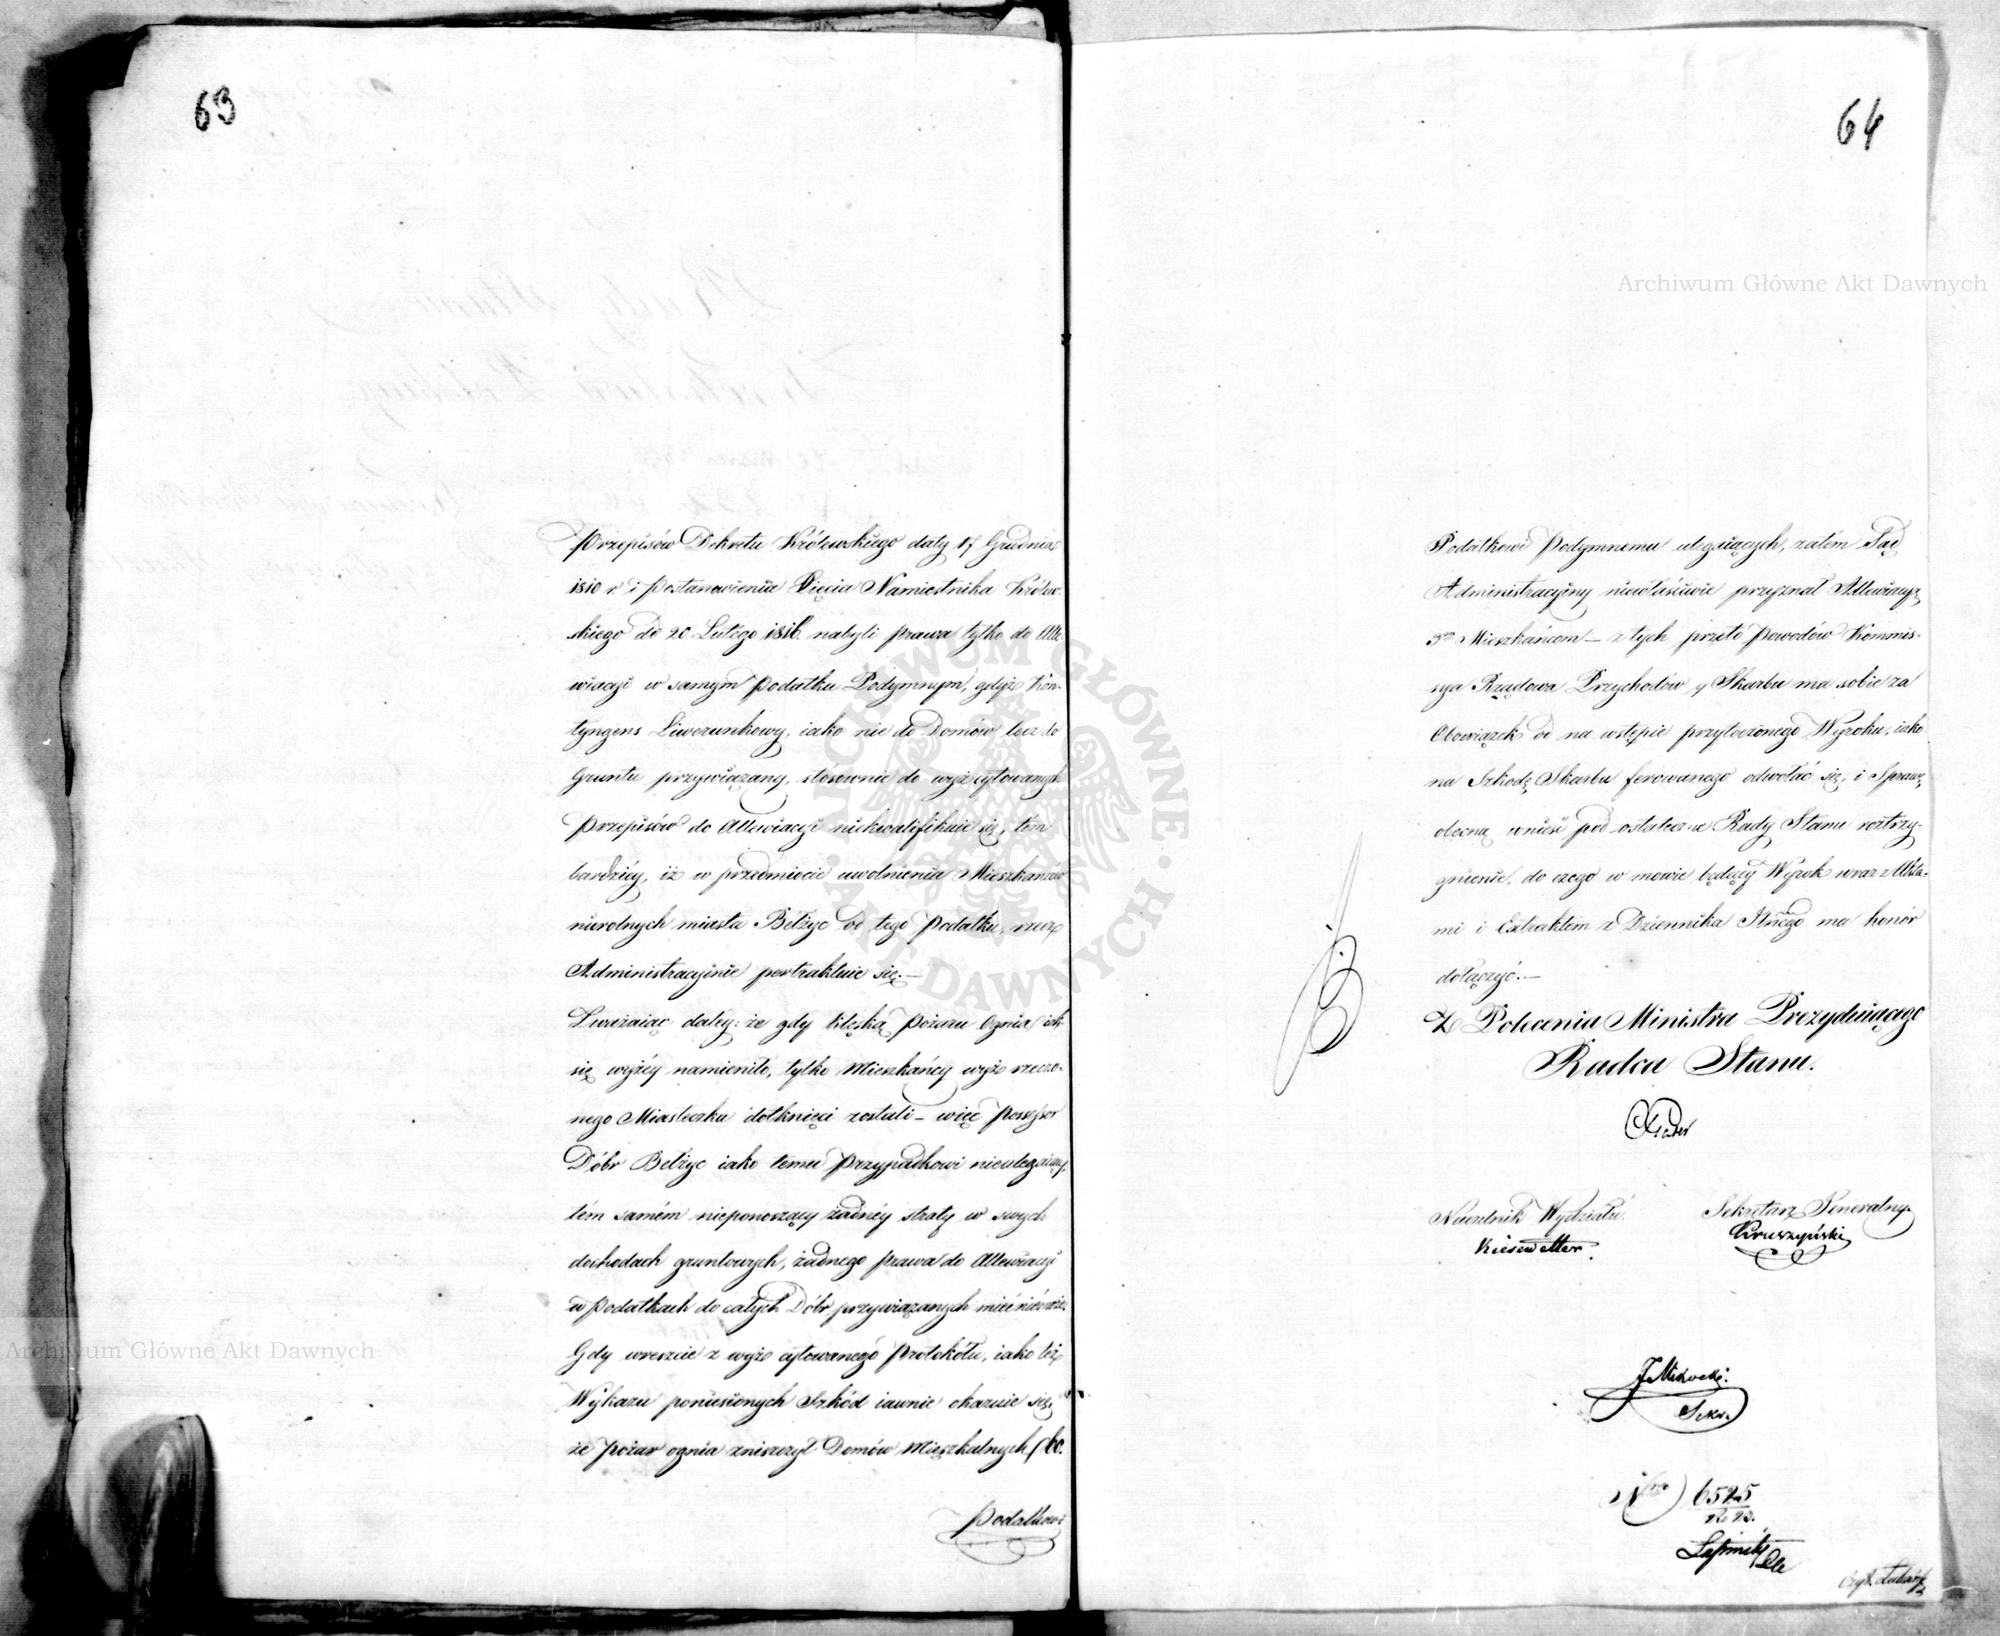 63
Przepisów Dekretu Królewskiego daty 17 Grudnia
1810 r. i Postanowienia Xięcia Namiestnika Królew-
skiego de 20 Lutego 1816 nabyli prawa tylko do Alle
wiacyi w samym Podatku Podymnym, gdyż Kon-
tyngens Liwerunkowy, iako nie do Domów lecz do
Gruntu przywiązany, stósownie do wyż cytowanych
Przepisów do Allewiacyi niekwalifikuie się, tém
bardziéy, iż w przedmiocie uwolnienia Mieszkańców
nierolnych miasta Bełżyc od tego Podatku, rzecz
Administracyinie pertraktuie się.—
Zważaiąc daléy: że gdy klęską Pożaru Ognia iak
się wyżéy namieniło, tylko Mieszkańcy wyż rzeczo-
nego Miasteczka dotknięci zostali — więc Possessor
Dóbr Bełżyc iako temu Przypadkowi nieulegaiący,
tém samém nieponoszący żadnéy straty w swych
dochodach gruntowych, żadnego prawa do Allewiacyi
w Podatkach do całych Dóbr przywiązanych mieć niemoże.
Gdy wreszcie z wyż cytowanego Protokółu, iako też
Wykazu poniesionych Szkód iawnie okazuie się,
że Pożar ognia zniszczył Domów Mieszkalnych 60.
Podatkowi
64
Podatkowi Podymnemu ulegaiących, zatém Sąd
Administracyiny niewłaściwie przyznał Allewiacyą
Mieszkańcom — z tych przeto Powodów Kommis-
sya Rządowa Przychodów y Skarbu ma sobie za
Obowiązek od na wstępie przytoczonego Wyroku, iako
na Szkodę Skarbu ferowanego odwołać się, i Sprawę
obecną wnieść pod ostateczne Rady Stanu roztrzy-
gnienie, do czego w mowie będący Wyrok wraz z Akta-
mi i Extraktem z Dziennika ma honór
dołączyć.—
Z Polecenia Ministra Prezyduiącego
Radca Stanu.
Naczelnik Wydziału.
Kiesewetter.
Sekretarz Generalny.
Kruszyński
Sekr.
Nro 6525
Archiwum Główne Akt Dawnych
Archiwum Główne Akt Dawnych
· ARCHIWUM GŁÓWNE · AKT DAWNYCH